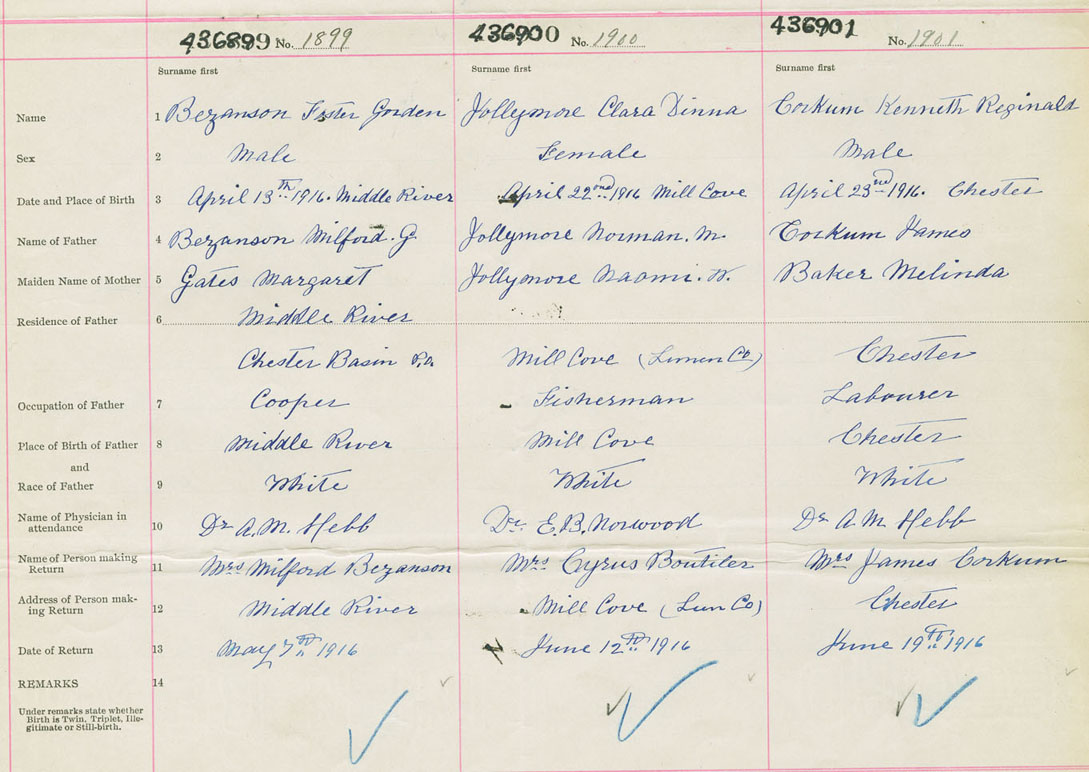 436899 No. 1899 436900 No. 1900 436901 No. 1901
Surname first Surname first Surname first
Name 1 Bezanson Foster Gorden Jollymore Clara Dinna Corkum Kenneth Reginald
Sex 2 Male Female Male
Date and Place of Birth 3 April 13th 1916. Middle River April 22nd 1916 Mill Cove April 23rd 1916. Chester
Name of Father 4 Bezanson Milford. G Jollymore Norman. M. Corkum James
Maiden Name of Mother 5 Gates Margaret Jollymore Naomi. Baker Melinda
Residence of Father 6 Middle River
Chester Basin P.O. Mill Cove (Lunen Co) Chester
Occupation of Father 7 Cooper Fisherman Labourer
Place of Birth of Father 8 Middle River Mill Cove Chester
and
Race of Father 9 White White White
Name of Physician in attendance 10 Dr A.M. Hebb Dr. E.B. Norwood Dr A M. Hebb
Name of Person making Return 11 Mrs Milford Bezanson Mrs Cyrus Boutiler Mrs James Corkum
Address of Person mak-
ing Return 12 Middle River Mill Cove (Lun Co) Chester
Date of Return 13 May 7th 1916 June 12th 1916 June 19th 1916
REMARKS 14
Under remarks state whether
Birth is Twin, Triplet, Ille-
gitimate or Still-birth.